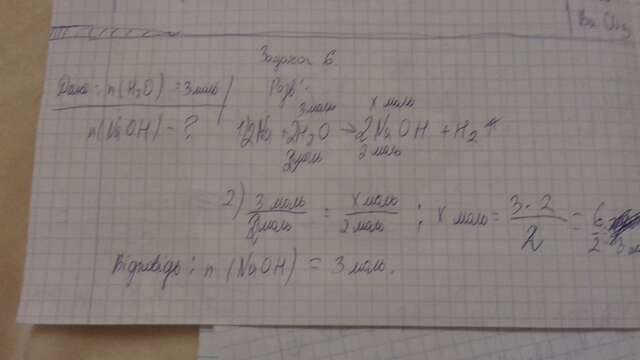 Задача 6.
Дано: n(H₂O) = 3 моль
Розв':
3 моль x моль
n(NaOH) - ?
1) 2Na + 2H₂O → 2NaOH + H₂ ↑
2 моль 2 моль
2) 3 моль / 2 моль = x моль / 2 моль ; x моль = 3 · 2 / 2 = 6 / 2 3
Відповідь: n (NaOH) = 3 моль.